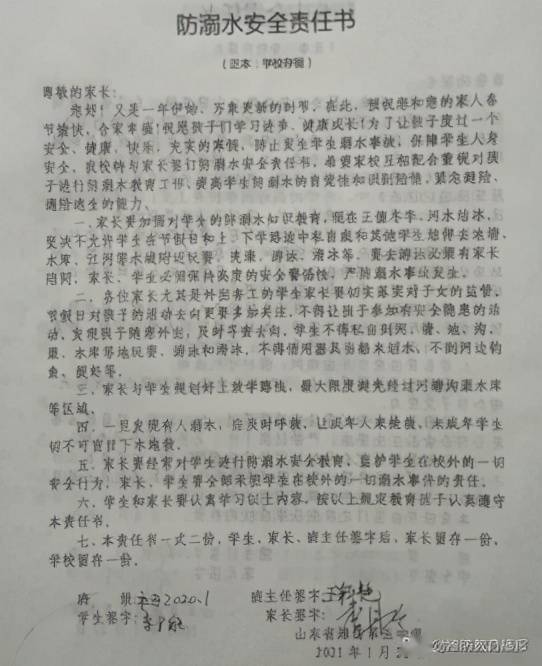 防溺水安全责任书
(正本：学校存留)
尊敬的家长：
您好！又是一年伊始、万象更新的时节，在此，预祝您和您的家人春
节愉快、合家幸福！祝愿孩子们学习进步、健康成长！为了让孩子度过一个
安全、健康、快乐、充实的寒假，防止发生学生溺水事故，保障学生人身
安全，我校特与家长签订防溺水安全责任书，希望家校互相配合重视对孩
子进行防溺水教育工作，提高学生防溺水的自觉性和识别险情、紧急避险、
遇险逃生的能力。
一、家长要加强对学生的防溺水知识教育，现在正值冬季，河水结冰，
坚决不允许学生在节假日和上、下学路途中私自或和其他学生结伴去池塘、
水库、江河等水域附近玩耍、洗澡、游泳、滑冰等，要去游泳必须有家长
陪同，家长、学生必须保持高度的安全警惕性，严防溺水事故发生。
二、各位家长尤其是外出务工的学生家长要切实落实对子女的监管，
节假日对孩子的活动去向更要多加关注，不得让孩子参加有安全隐患的活
动，发现孩子随意外出，及时寻查去向，学生不得私自到河、塘、池、沟、
渠、水库等地玩耍、游泳和滑冰，不得使用器具去船来划水，不到河边钓
鱼、捉虾等。
三、家长与学生规划好上放学路线，最大限度避免经过河塘沟渠水库
等区域。
四、一旦发现有人溺水，应及时呼救、让成年人来施救，未成年学生
切不可盲目下水施救。
五、家长要经常对学生进行防溺水安全教育、监护学生在校外的一切
安全行为，家长、学生要全部承担学生在校外的一切溺水事件的责任。
六、学生和家长要认真学习以上内容，按以上规定教育孩子认真遵守
本责任书。
七、本责任书一式二份，学生、家长、班主任签字后，家长留存一份，
学校留存一份。
班 级：2020.1 班主任签字：
学生签字： 家长签字：
山东省潍
2021年1月